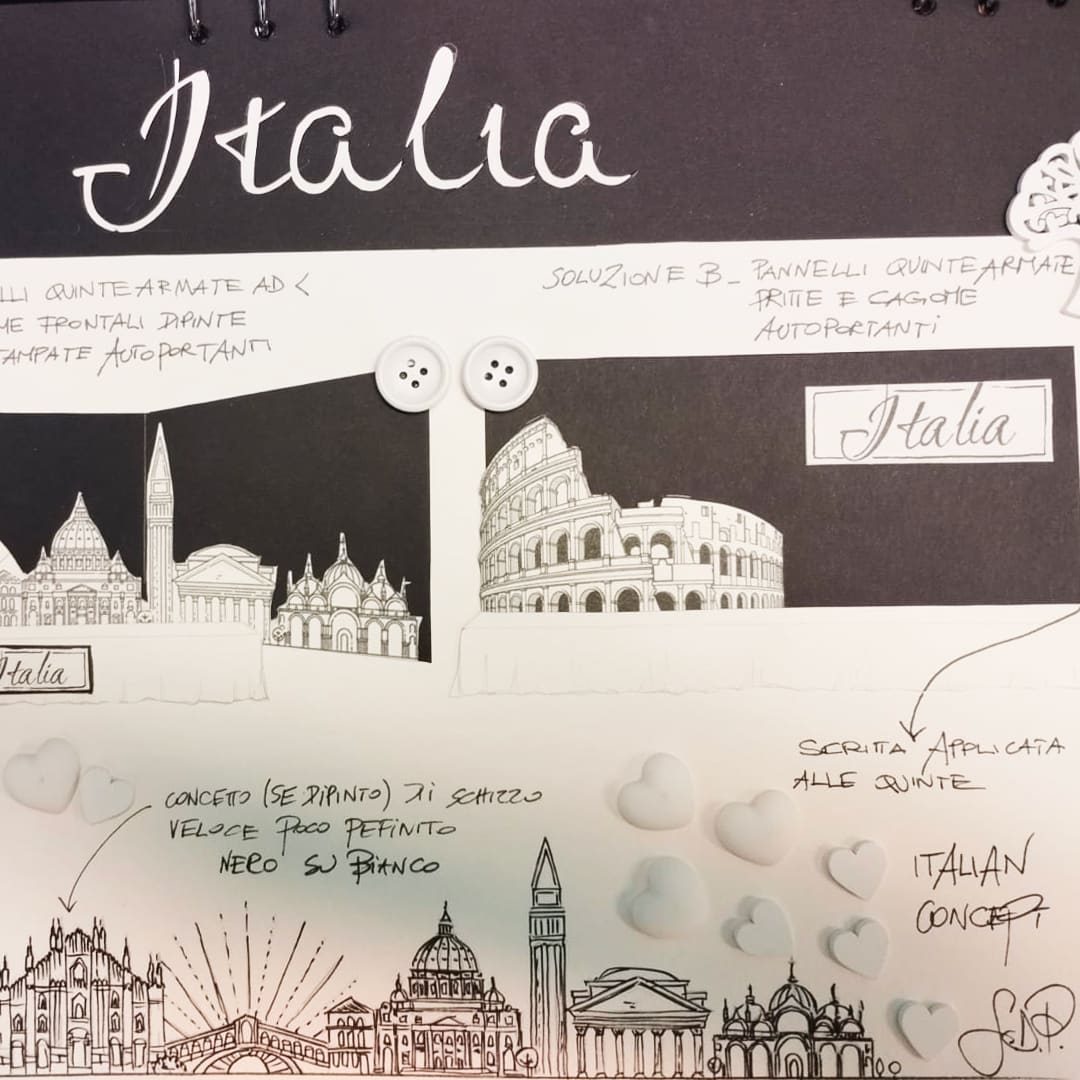 Italia
LLI QUINTE ARMATE AD <
ME FRONTALI DIPINTE
TAMPATE AUTOPORTANTI
SOLUZIONE B_ PANNELLI QUINTE ARMATE
DRITTE E CAGIOME
AUTOPORTANTI
Italia
Italia
SCRITTA APPLICATA
ALLE QUINTE
CONCETTO (SE DIPINTO) DI SCHIZZO
VELOCE POCO DEFINITO
NERO SU BIANCO
ITALIAN
CONCEPT